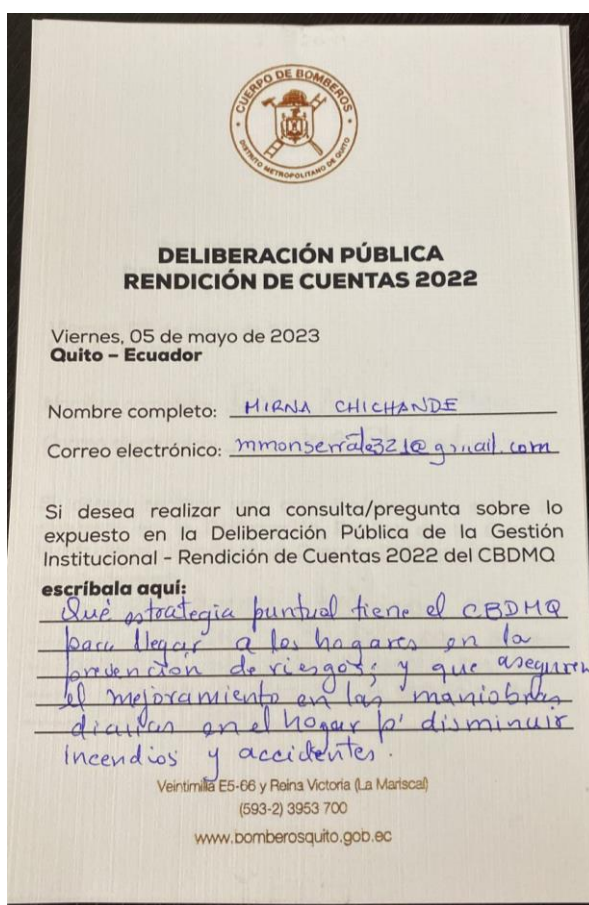 CUERPO DE BOMBEROS
DISTRITO METROPOLITANO DE QUITO
DELIBERACIÓN PÚBLICA
RENDICIÓN DE CUENTAS 2022
Viernes, 05 de mayo de 2023
Quito – Ecuador
Nombre completo: MIRNA CHICHANDE
Correo electrónico: mmonserrate321@gmail.com
Si desea realizar una consulta/pregunta sobre lo
expuesto en la Deliberación Pública de la Gestión
Institucional - Rendición de Cuentas 2022 del CBDMQ
escríbala aquí:
Qué estrategia puntual tiene el CBDMQ
para llegar a los hogares en la
prevención de riesgos; y que aseguren
el mejoramiento en las maniobras
diarias en el hogar p' disminuir
incendios y accidentes.
Veintimilla E5-66 y Reina Victoria (La Mariscal)
(593-2) 3953 700
www.bomberosquito.gob.ec